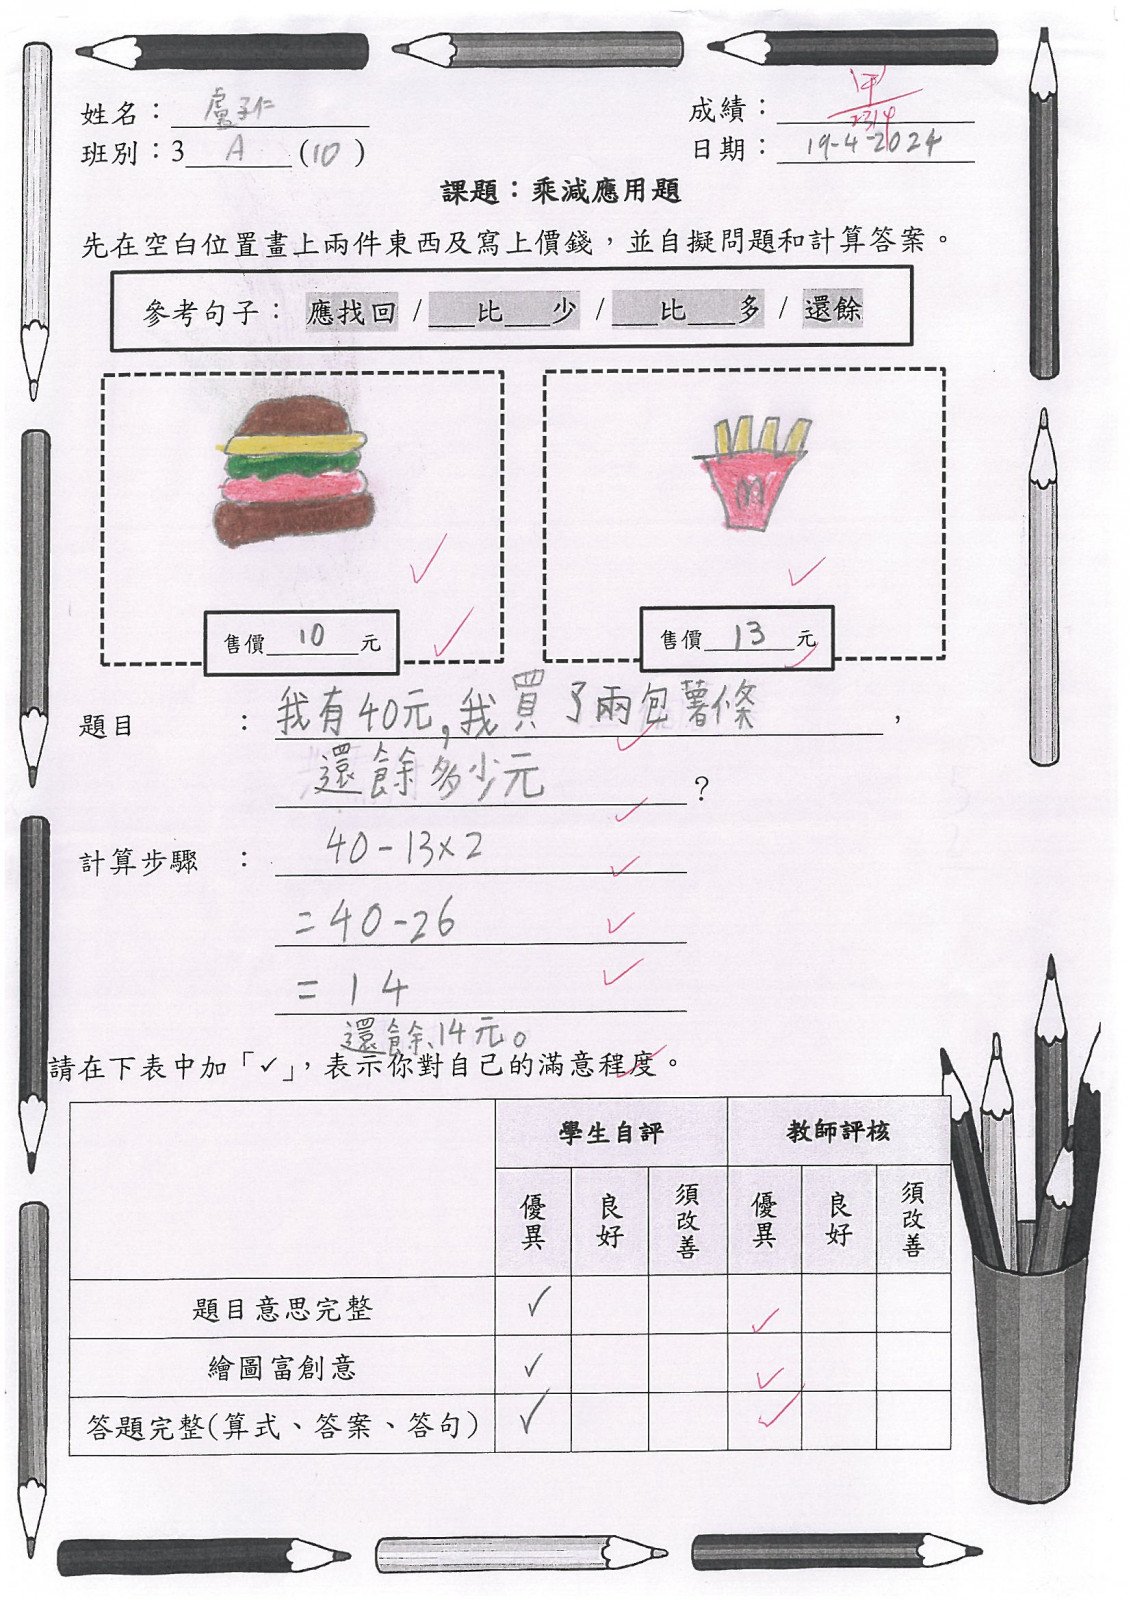 姓名：盧子仁
成績：甲
班別：3 A (10)
日期：19-4-2024
課題：乘減應用題
先在空白位置畫上兩件東西及寫上價錢，並自擬問題和計算答案。
參考句子： 應找回 / ___比___少 / ___比___多 / 還餘
M
售價 10 元
售價 13 元
題目 ： 我有40元,我買了兩包薯條 ，
還餘多少元 ？
計算步驟 ： 40-13×2
=40-26
=14
還餘14元。
請在下表中加「✓」，表示你對自己的滿意程度。
學生自評 教師評核
優異 良好 須改善 優異 良好 須改善
題目意思完整 ✓ ✓
繪圖富創意 ✓ ✓
答題完整(算式、答案、答句) ✓ ✓